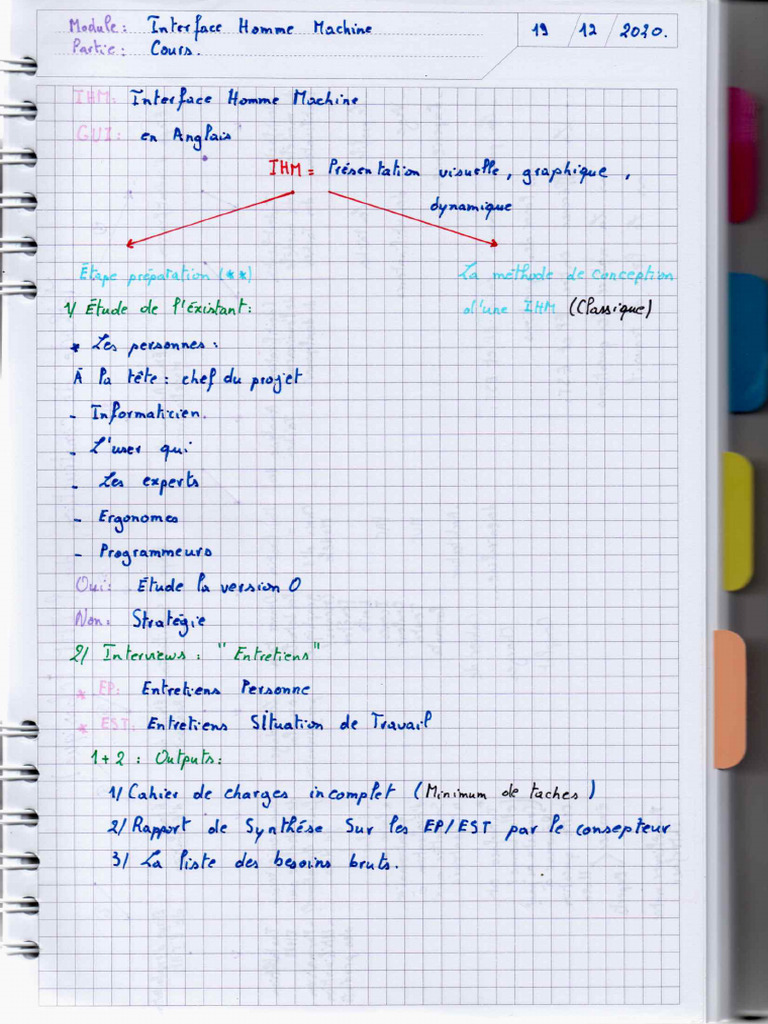 Module: Interface Homme Machine
19 / 12 / 2020.
Partie: Cours.
IHM: Interface Homme Machine
GUI: en Anglais
IHM = Présentation visuelle, graphique,
dynamique
Étape préparation (**)
La méthode de conception
d'une IHM (Classique)
1/ Étude de l'éxistant:
* Les personnes:
À la tête: chef du projet
- Informaticien.
- L'user qui
- Les experts
- Ergonomes
- Programmeurs
Oui: Etude la version 0
Non: Stratégie
2/ Interviews: "Entretiens"
* EP: Entretiens Personne
* EST: Entretiens Situation de Travail
1+2: Outputs:
1/ Cahier de charges incomplet (Minimum de taches)
2/ Rapport de Synthése Sur les EP/EST par le consepteur
3/ La liste des besoins bruts.